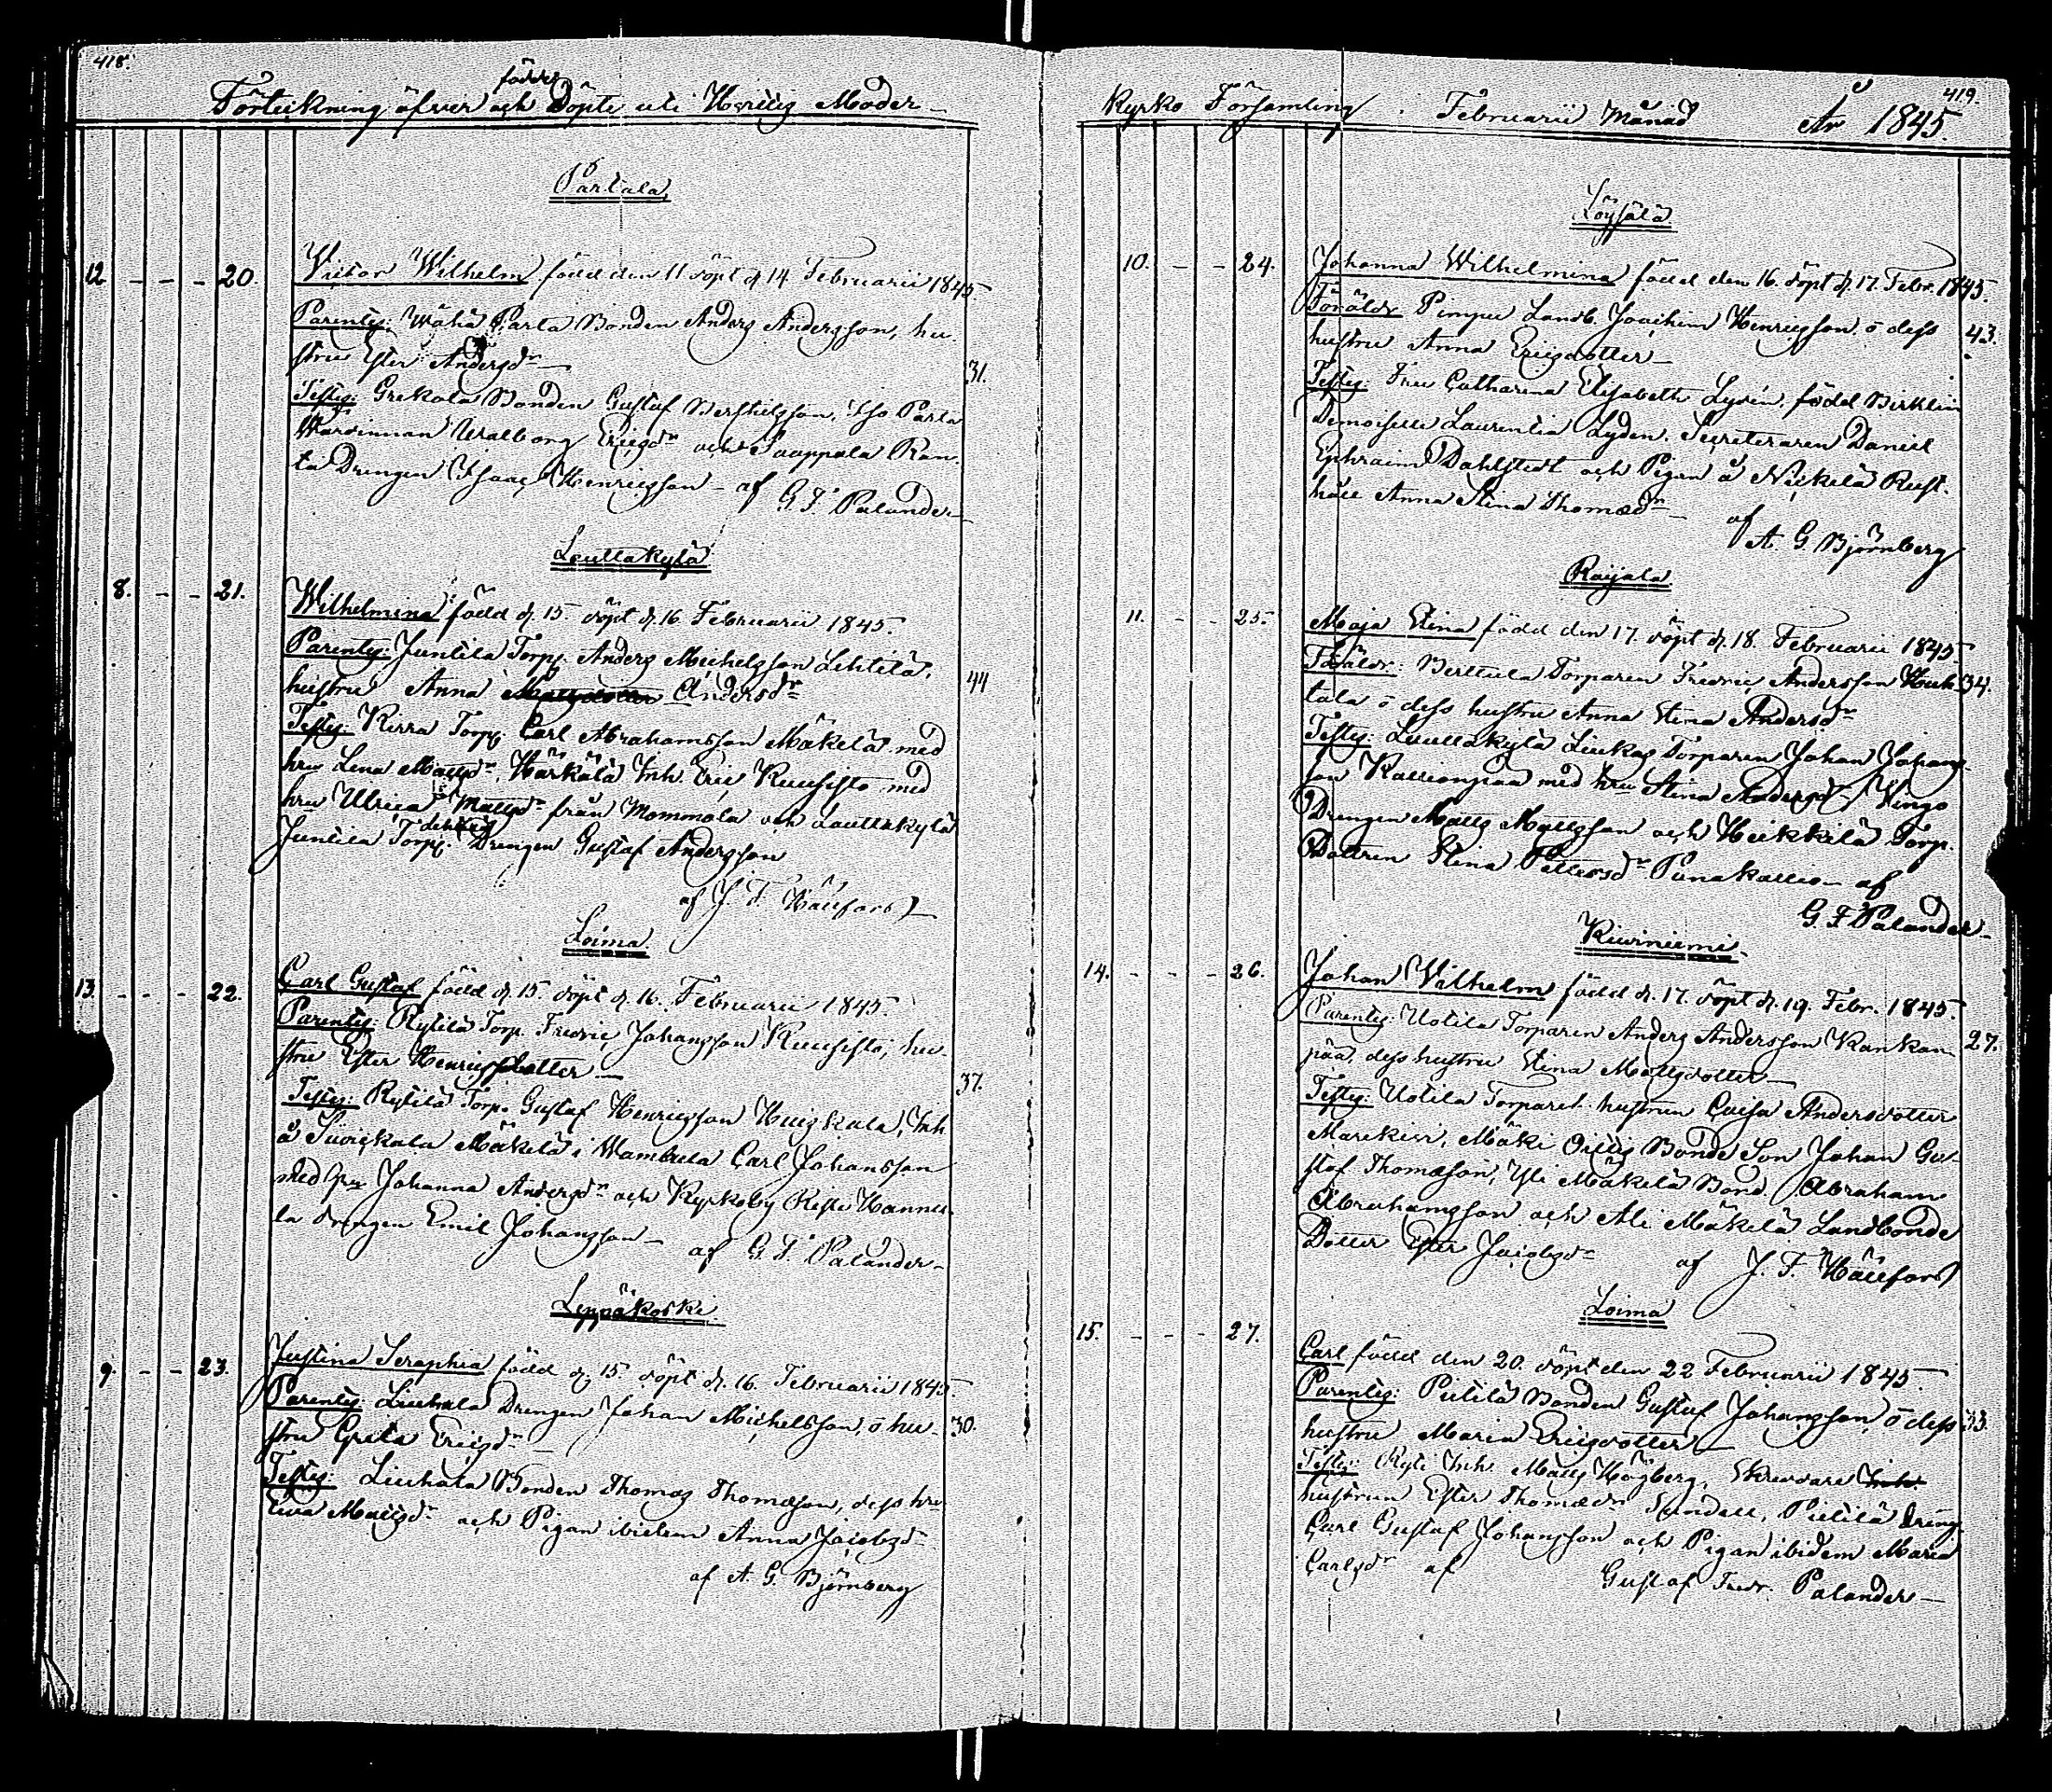 418.
födde
Förteckning öfver och Döpte uti Moder-
Partala
12 - - - 20. Victor Wilhelm född den 11 döpt d. 14 Februarii 1845
Parentes: Wähä Parta Bonden Anders Andersson, hu-
stru Ester Andersdr — 31.
Testes: Grekola Bonden Gustaf Bertilsson, Iso Parta
Wärdinnan Walborg Ericsdr och Ran-
ta Drengen Isaac Henricsson - af G. F. Palander-
Lauttakylä
8. - - 21. Wilhelmina född d. 15. döpt d. 16 Februarii 1845.
Parentes: Juntila Torp. Anders Michelsson Lehtilä,
hustru Anna Andersdr 44
Testes: Kirra Torp. Carl Abrahamsson Mäkelä med
hru Lena Mattsdr, Härkälä Inh. Eric Kuusisto med
hru Ulrica Mattsdr från Mommola och Lauttakylä
Juntila Torp. Drengen Gustaf Andersson
af J. F. Hällfors
Loima
13. - - - 22. Carl Gustaf född d. 15. döpt d. 16. Februarii 1845.
Parentes: Rytilä Torp. Fredric Johansson Kuusisto, hu-
stru Ester Henricsdotter — 37.
Testes: Rytilä Torp. Gustaf Henricsson Huiskala, Inh.
å Suiskala Mäkelä i Wambula Carl Johansson
med hru Johanna Andersdr och Kyrkoby Risti Hannu-
la drengen Emil Johansson - af G. F. Palander-
Leppäkoski
9. - - 23. Justina Seraphia född d. 15. döpt d. 16. Februarii 1845.
Parentes: Liuhala Drengen Johan Michelsson, o hu- 30.
stru Greta Ericsdr —
Testes: Liuhala Bonden Thomas Thomasson, dess hru
Eva Mattsdr och Pigan ibidem Anna Jacobsdr
af A. G. Björnberg
419.
Kyrko Församling i Februarii Månad År 1845.
Löysälä
10. - - 24. Johanna Wilhelmina född den 16. döpt d. 17. Febr. 1845.
Föräldr. Pimpu Landb. Joachim Henricsson o dess 43.
hustru Anna Ericsdotter —
Testes: Fru Catharina Elisabeth Lydén, född Birklin
Demoiselle Laurentia Lydén. Secreteraren Daniel
Ephraim Dahlstedt och Pigan å Nickelä Rust-
håll Anna Stina Thomasdr — af
A. G. Björnberg
Raijala
11. - - 25. Maja Stina född den 17. döpt d. 18. Februarii 1845.
Föräldr: Berttula Torparen Fredric Andersson Huh- 34.
tala o dess hustru Anna Stina Andersdr
Testes: Lauttakylä Liukas Torparen Johan Johans-
son Kallionpää med hru Stina Andersdr,
Drengen Matts Mattsson och Heikkilä Torp.
Dottren Stina Pettersdr Punakallio- af
G. F. Palander-
Kiviniemi
14. - - - 26. Johan Wilhelm född d. 17. döpt d. 19. Febr. 1845.
Parentes: Uotila Torparen Anders Andersson Kankan- 27.
pää, dess hustru Stina Mattsdotter —
Testes: Uotila Torpare hustrun Caisa Andersdotter
Mäki Bonde Son Johan Gu-
staf Thomasson, Yli Mäkelä Bond. Abraham
Abrahamsson och Ali Mäkelä Landbonde
Dotter Ester Jacobsdr af J. F. Hällfors
Loima
15. - - - 27. Carl född den 20. döpt den 22 Februarii 1845.
Parentes: Pietilä Bonden Gustaf Johansson, o dess 33.
hustru Maria Ericsdotter —
Testes: Ryti Inh. Matts Högberg, Skreddare Inh.
hustrun Ester Thomasdr Pietilä Dreng.
Carl Gustaf Johansson och Pigan ibidem Maria
Carlsdr af Gustaf Fredr. Palander-